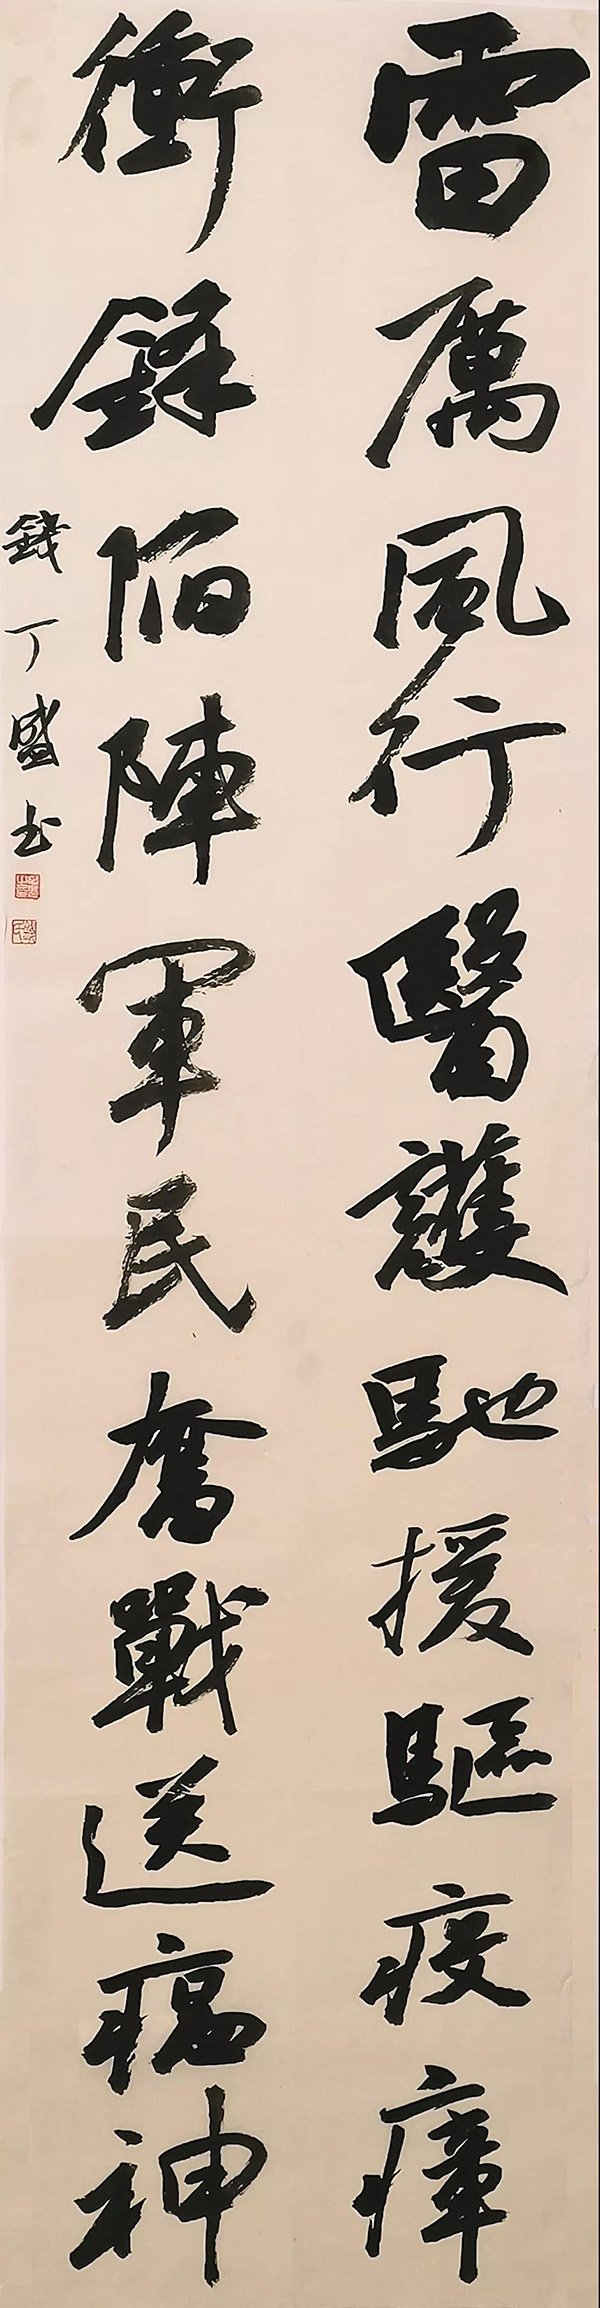 雷厲風行醫護馳援驅疫瘴
衝鋒陷陣軍民奮戰送瘟神
錢丁盛书